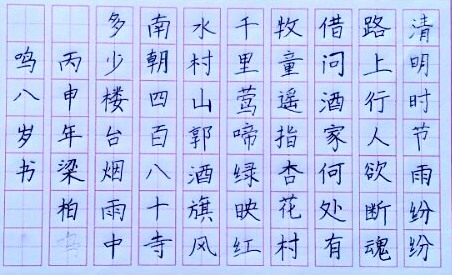 清明时节雨纷纷
路上行人欲断魂
借问酒家何处有
牧童遥指杏花村
千里莺啼绿映红
水村山郭酒旗风
南朝四百八十寺
多少楼台烟雨中
丙申年梁柏
鸣八岁书